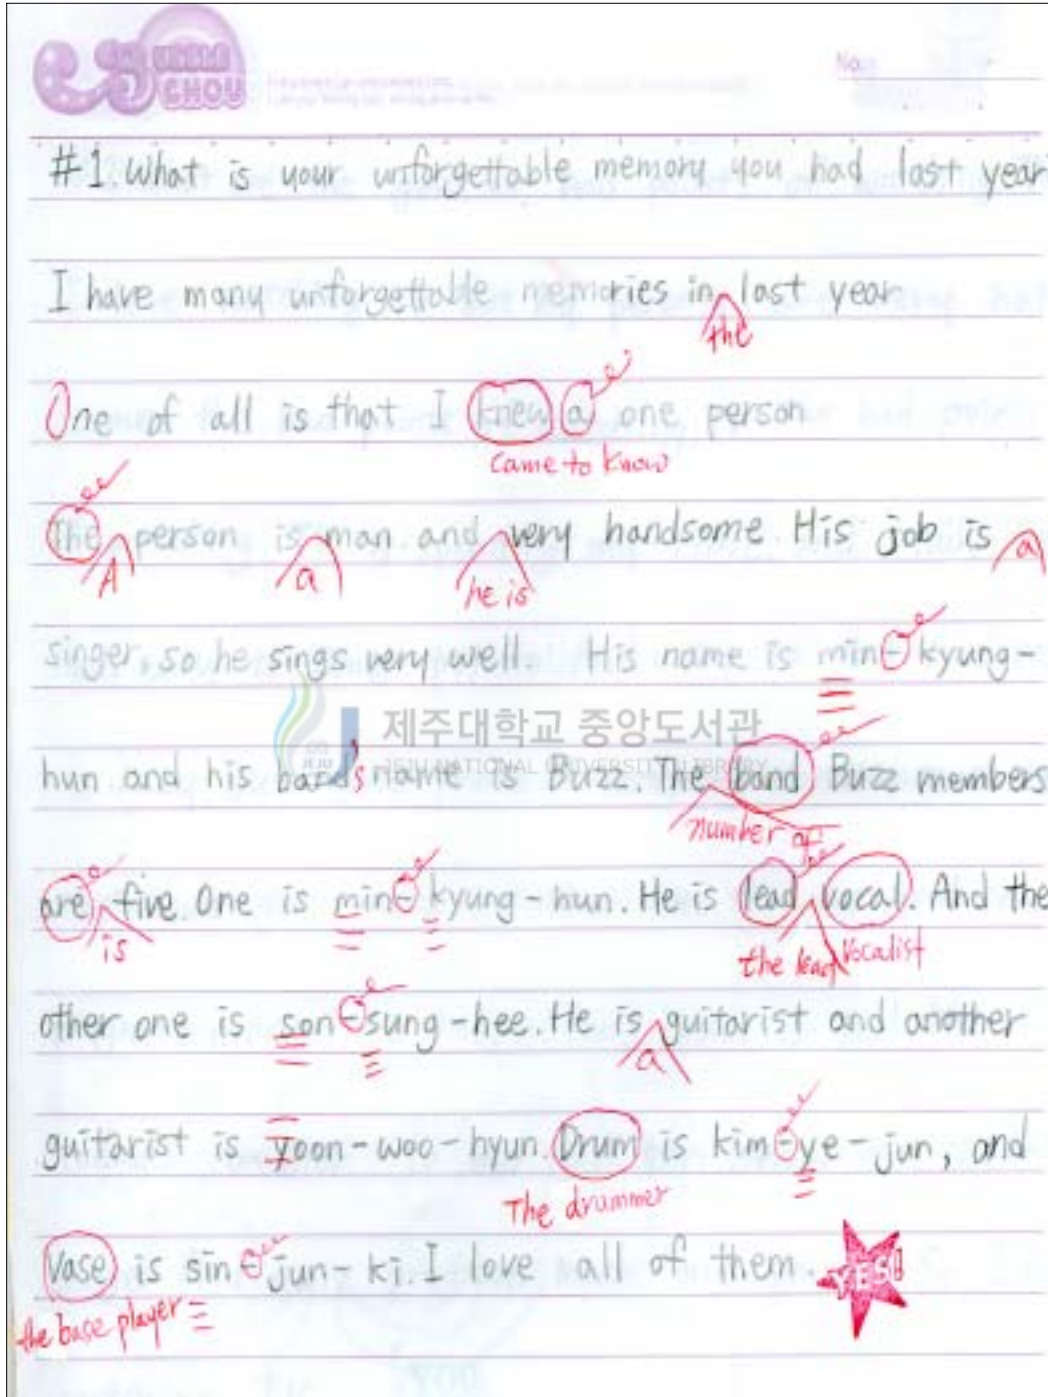 JELLY CHOU
No.
#1. What is your unforgettable memory you had last year
I have many unforgettable memories in last year
the
One of all is that I knew a one person
came to know
The person is man and very handsome. His job is a
A a he is
singer, so he sings very well. His name is min-kyung-
제주대학교 중앙도서관
JEJU NATIONAL UNIVERSITY LIBRARY
hun and his band's name is Buzz. The band Buzz members
number of
are five. One is min-kyung-hun. He is lead vocal. And the
is the lead vocalist
other one is son-sung-hee. He is guitarist and another
a
guitarist is yoon-woo-hyun. Drum is kim-ye-jun, and
The drummer
Vase is sin-jun-ki. I love all of them.
YES!
the base player